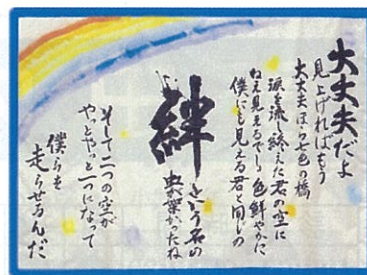 大丈夫だよ
見上げればもう
大丈夫ほら七色の橋
涙を流し終えた君の空に
ねえ見えるでしょ色鮮やかに
僕にも見える君と同じの
絆という名の
虹がかかったね
そして二つの空が
やっとやっと一つになって
僕らを
走らせるんだ